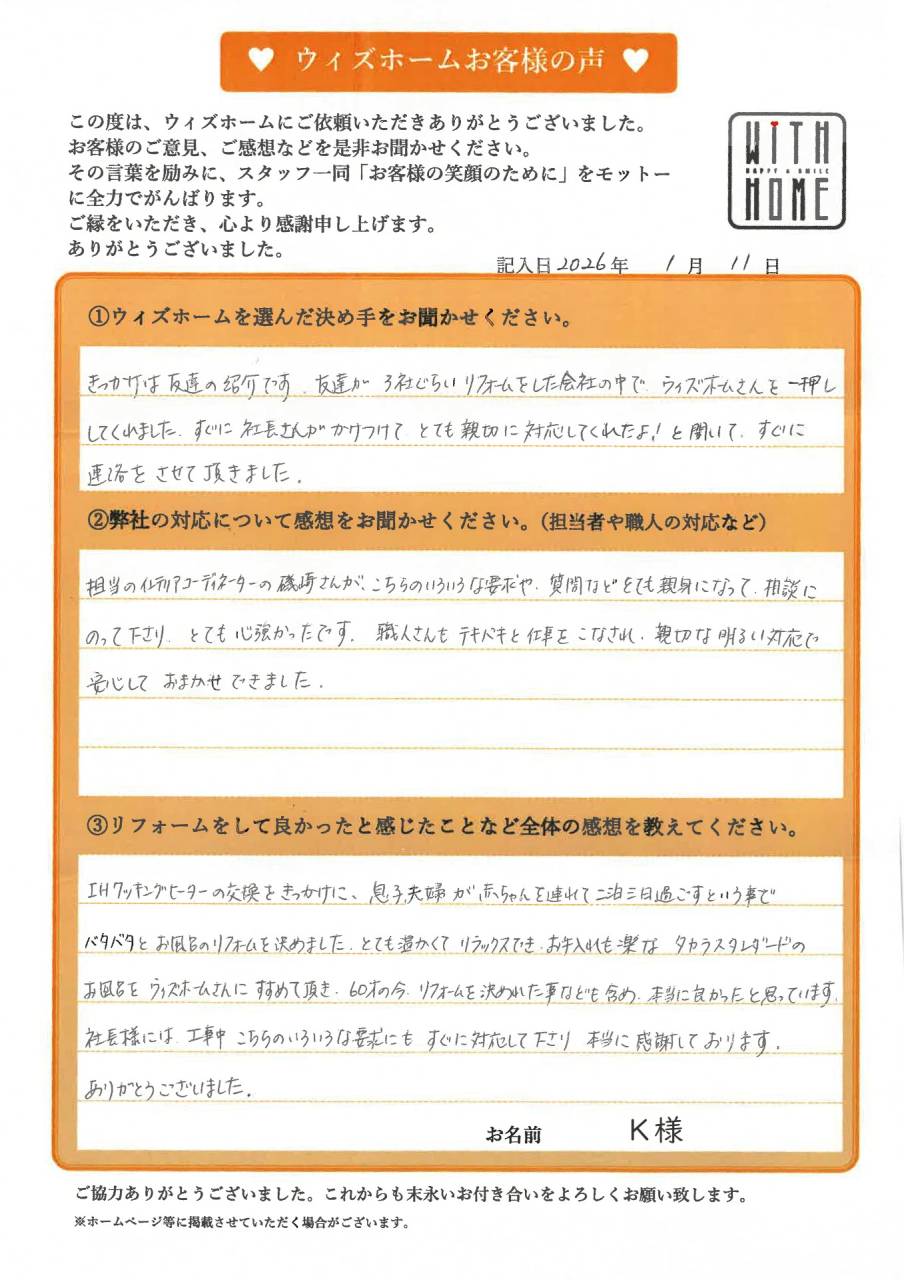 ♥ ウィズホームお客様の声 ♥
この度は、ウィズホームにご依頼いただきありがとうございました。
お客様のご意見、ご感想などを是非お聞かせください。
その言葉を励みに、スタッフ一同「お客様の笑顔のために」をモットー
に全力でがんばります。
ご縁をいただき、心より感謝申し上げます。
ありがとうございました。
WITH
HAPPY & SMILE
HOME
記入日2026年 1月 11日
①ウィズホームを選んだ決め手をお聞かせください。
きっかけは友達の紹介です。友達が3社ぐらいリフォームをした会社の中で、ウィズホームさんを一押し
してくれました。すぐに社長さんがかけつけてとても親切に対応してくれたよ!と聞いて、すぐに
連絡をさせて頂きました。
②弊社の対応について感想をお聞かせください。(担当者や職人の対応など)
担当のインテリアコーディネーターの磯崎さんが、こちらのいろいろな要求や、質問などとても親身になって、相談に
のって下さり、とても心強かったです。職人さんもテキパキと仕事をこなされ、親切な明るい対応で
安心しておまかせできました。
③リフォームをして良かったと感じたことなど全体の感想を教えてください。
IHクッキングヒーターの交換をきっかけに、息子夫婦が赤ちゃんを連れて二泊三日過ごすという事で
バタバタとお風呂のリフォームを決めました。とても温かくてリラックスでき、お手入れも楽なタカラスタンダードの
お風呂をウィズホームさんにすすめて頂き、60才の今、リフォームを決めれた事なども含め、本当に良かったと思っています。
社長様には、工事中こちらのいろいろな要求にもすぐに対応して下さり本当に感謝しております。
ありがとうございました。
お名前 K様
ご協力ありがとうございました。これからも末永いお付き合いをよろしくお願い致します。
※ホームページ等に掲載させていただく場合がございます。